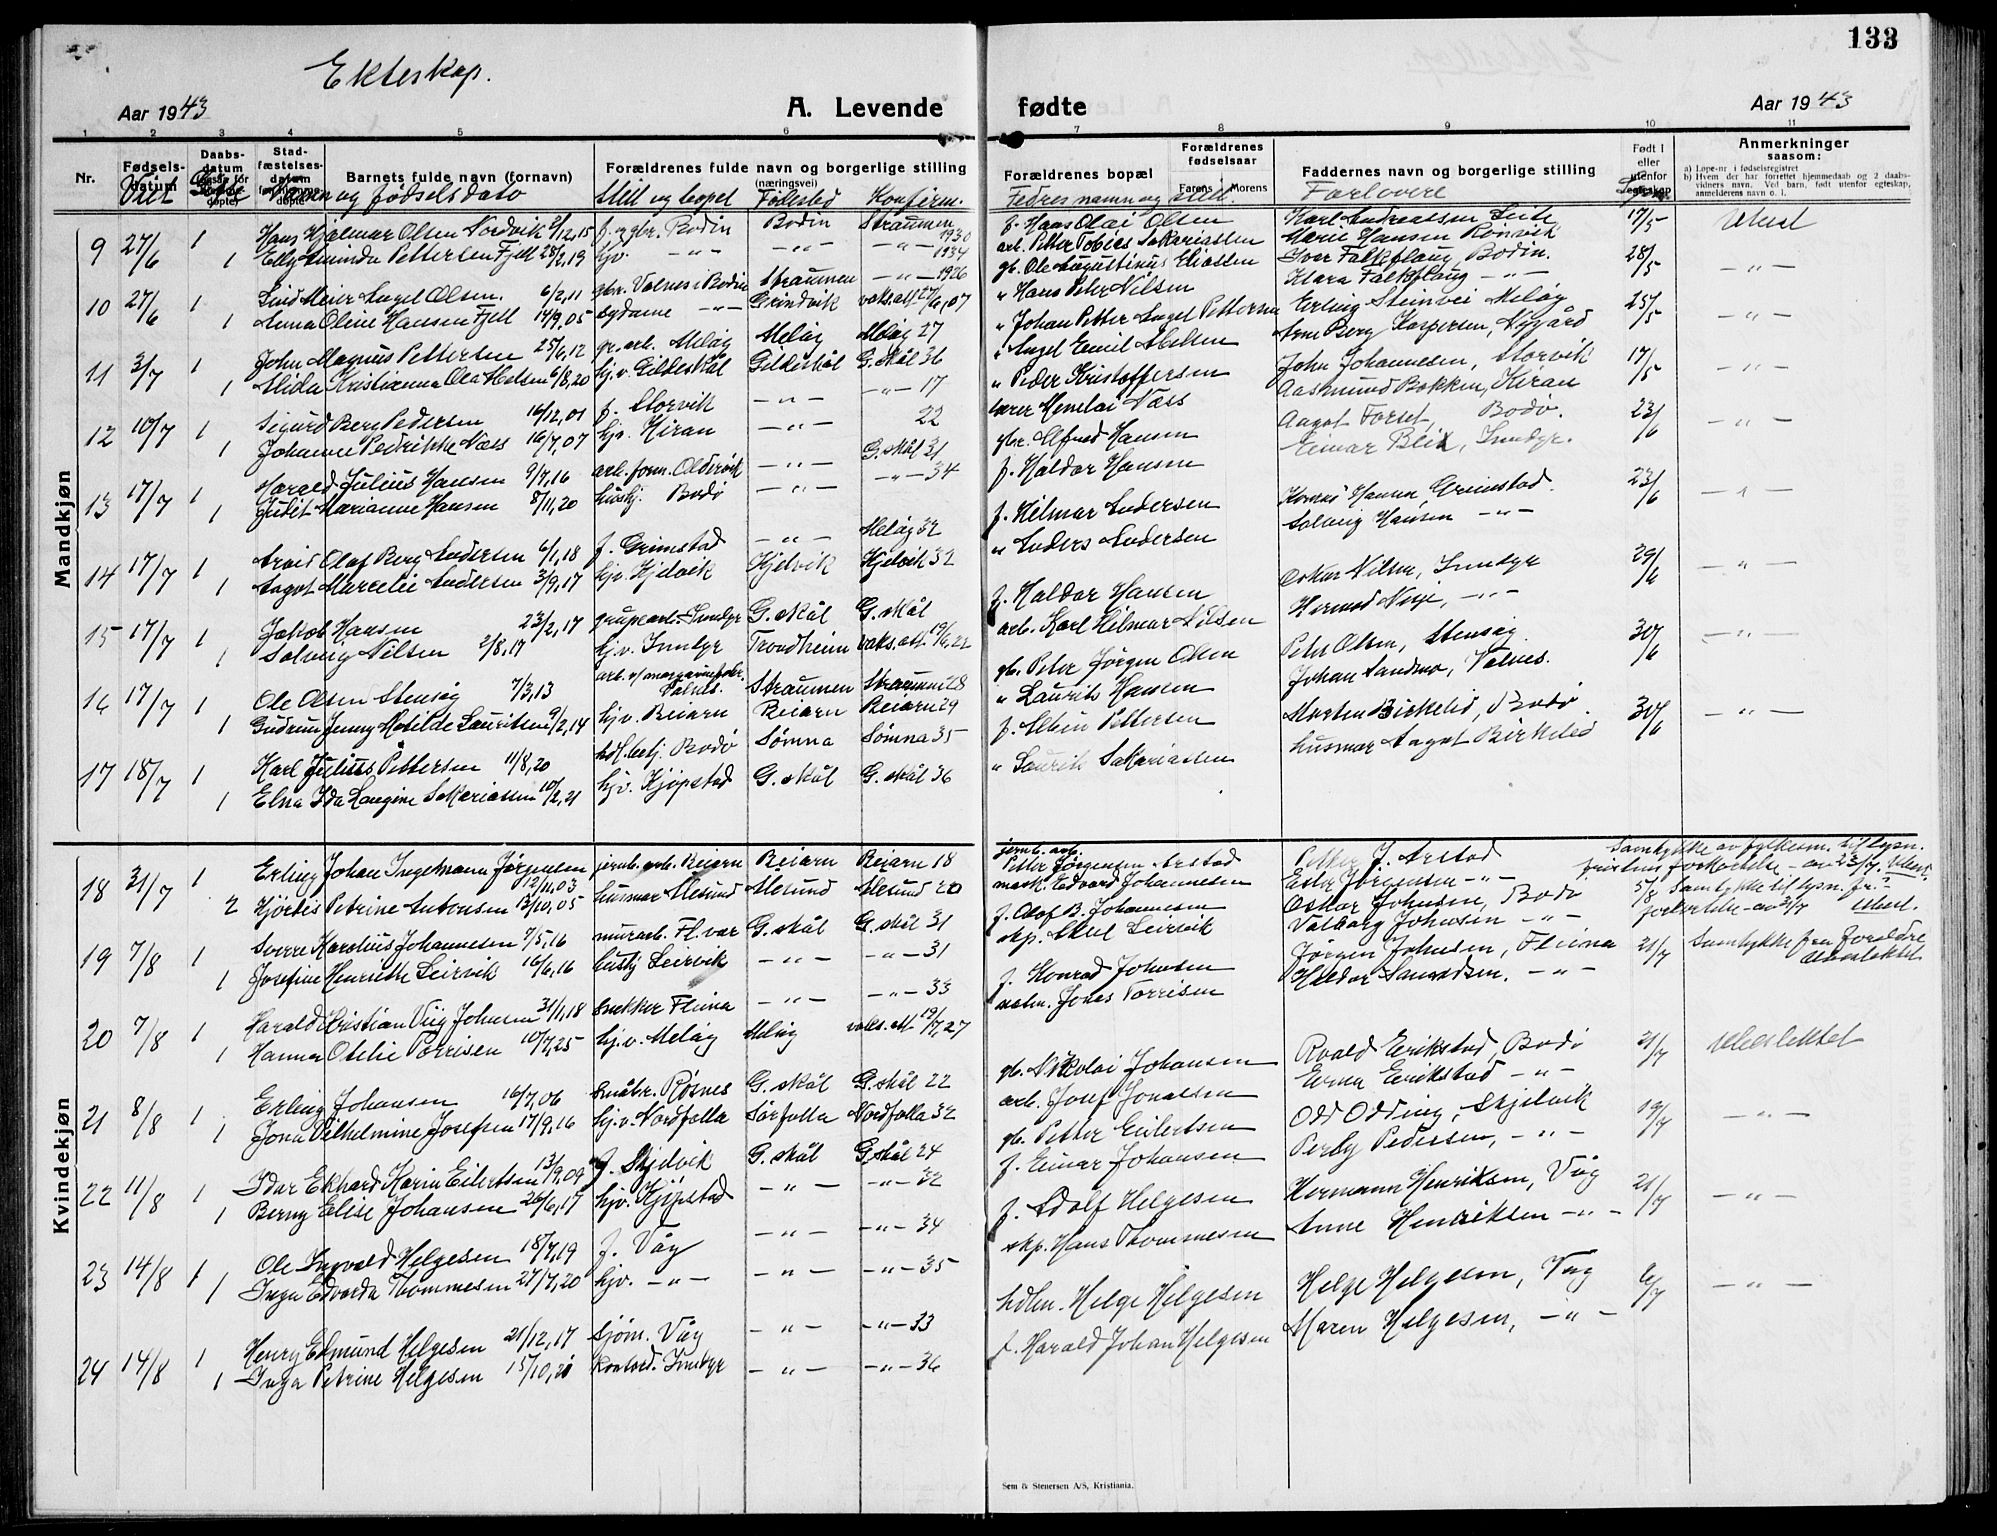 133
Ekteskap.
Aar 1943
A. Levende fødte
Aar 1943
1 2 3 4 5 6 7 8 9 10 11
Nr.
Fødselsdatum
Daabsdatum
Stadfæstelsesdatum
Barnets fulde navn (fornavn)
Forældrenes fulde navn og borgerlige stilling
(næringsvei)
Forældrenes bopæl
Forældrenes fødselsaar
Farens Morens
Faddernes navn og borgerlige stilling
Født i eller utenfor egteskap
Anmerkninger
saasom:
a) Løpe-nr i fødselsregistret
b) Hvem der har forrettet hjemmedaab og 2 daabsvidners navn. Ved barn, født utenfor egteskap, anmelderens navn o. l.
Viet
Navn og fødselsdato
Still og bopel
Fødested
Konfirm.
Fedres namn og still.
Forlovere
Mandkjøn
9 27/6 1 Hans Hjalmar Olsen Nordvik 2/12,15 f. og gbr. Bodin Bodin Straumen 1930 f. Hans Olai Olsen Karl Andreassen Seite 17/5 Ulest
1 Elly Amunda Pettersen Fjell 28/2,19 hjv. — „ — — „ — — „ — 1934 arb. Petter Tobias Sakariassen Marie Hansen Rønvik
10 27/6 1 Meier Angel Olsen. 6/2,11 gbr. Valnes i Bodin Straumen — „ — 1926 gb. Ole Augustinus Eliassen Iver Falkflaug, Bodin. 28/5 — „ —
1 Anna Oline Hansen Fjell 14/9,05 sydame — „ — Grindvik vaks.att. 27/6,07 „ Hans Peter Nilsen Klara Falkflaug — „ —
11 3/7 1 John Magnus Pettersen 25/6,12 gr.arb. Meløy Meløy Meløy 27 „ Johan Petter Angel Pettersen Erling Steinvei Meløy 25/5 — „ —
1 Alida Kristianna Ola Abelsen 6/8,20 hj.v. Gildeskål Gildeskål G. skål 36 „ Angel Emil Abelsen Arne Berg Kaspersen, Nygård
12 10/7 1 Sigurd Berg Pedersen 16/12,01 f. Storvik — „ — — „ — 17 „ Peder Kristoffersen John Johannesen, Storvik 17/5 — „ —
1 Johanne Pedrikke Næss 16/7,07 hjv. Kiran — „ — 22 lærer Menelai Næss Aasmund Bakken, Kiran
13 17/7 1 Harald Julius Hansen 9/7,16 arb. form. Oldervik — „ — G. skål 31 gbr. Alfred Hansen Aagot Forset, Bodø. 23/6 — „ —
1 Judit Marianne Hansen 8/11,20 hushj. Bodø — „ — — „ — 34 f. Haldor Hansen Einar Blix, Inndyr.
14 17/7 1 Arvid Olaf Berg Andersen 6/1,18 f. Grimstad — „ — Meløy 32 f. Hilmar Andersen Hansen, Grimstad. 23/6 — „ —
1 Aagot Marcelie Andersen 3/9,17 hjv. Hjelvik Hjelvik Hjelvik 32 „ Anders Andersen Solveig Hansen — „ —
15 17/7 1 Jakob Hansen 23/2,17 grupearb. Inndyr G. skål G. skål f. Haldor Hansen Oskar Nilsen, Inndyr 29/6 — „ —
1 Solveig Nilsen 2/8,17 hj.v. Inndyr Trondheim vaks.att. 19/6,22 arb. Karl Hilmar Nilsen Hermod Nesje, — „ —
16 17/7 1 Ole Olsen Stensøy 7/3,13 Valnes. Straumen Straumen 28 gb. Peter Jørgen Olsen Peter Olsen, Stensøy. 30/6 — „ —
1 Gudrun Jenny Matilde Lauritsen 9/2,14 hjv. Beiarn Beiarn Beiarn 29 „ Laurits Hansen Johan Sandmo, Valnes.
17 18/7 1 Karl Julius Pettersen 11/8,20 Bodø Sømna Sømna 35 f. Albin Pettersen Morten Birkelid, Bodø. 30/6 — „ —
1 Elna Ida Laugine Sakariassen 10/2,21 hjv. Kjøpstad G. skål G. skål 36 „ Laurits Sakariassen husmor Aagot Birkelid
Kvindekjøn
18 31/7 1 Erling Johan Ingelmann Jørgensen 12/11,03 jernb. arb. Beiarn Beiarn Beiarn 18 jernb. arb. Petter Jørgensen Arstad Petter J. Arstad Samtykke av fylkesm. til lysn. fristens forkortelse — av 23/7. Ulest.
2 Hjørdis Petrine Antonsen 13/10,05 husmor Ålesund Ålesund Ålesund 20 mask. Edvard Johannesen Ester Jørgensen — „ —
19 7/8 1 Sverre Karelius Johannesen 7/5,16 murarb. Fl.vær G. skål G. skål 31 f. Olof B. Johannesen Oskar Johnsen, Bodø 5/8 Samtykke til lysn. fr. forkortelse — av 31/7 Ulest.
1 Josefine Henriette Leirvik 16/6,16 hushj Leirvik — „ — — „ — 31 skp. Skul Leirvik Valborg Johnsen — „ —
20 7/8 1 Harald Kristian Viig Johnsen 31/1,18 Snekker Fleina — „ — — „ — 33 f. Konrad Johnsen Jørgen Johnsen, Fleina 21/7 Samtykke fra foreldre Utenlekset
1 Hanna Otelie Torrisen 10/7,25 hj.v. Meløy Meløy vaks.att. 19/7,27 Jones Torrisen Haldor Samuelsen. — „ —
21 8/8 1 Erling Johansen 16/7,06 Småbr. Røsnes G. skål G. skål 22 gb. Nikolai Johansen Roald Erikstad, Bodø 21/7
1 Jona Vilhelmine Josefsen 17/9,16 hj.v. Nordfolla Sørfolla Nordfolla 32 arb. Josef Jonassen Erna Erikstad — „ —
22 11/8 1 Idar Ekhard Karin Eilertsen 13/9,09 f. Skjelvik G. skål G. skål 24 gb. Petter Eilertsen Odd Odding, Skjelvik 19/7 — „ —
1 Berny Elise Johansen 26/6,17 hjv. Kjøpstad — „ — — „ — 32 f. Einar Johansen Perly Pedersen, — „ —
23 14/8 1 Ole Ingvald Helgesen 18/7,19 f. Våg — „ — — „ — 34 f. Adolf Helgesen Hermann Henriksen, Våg 21/7 — „ —
1 Inga Edvarda Thommesen 27/7,20 hjv. — „ — — „ — — „ — 35 skp. Hans Thommesen Anne Henriksen — „ —
24 14/8 1 Henry Edmund Helgesen 21/12,17 Sjøm. Våg — „ — — „ — 33 hdlm. Helge Helgesen Helge Helgesen, Våg 6/7 — „ —
1 Inga Petrine Helgesen 15/10,20 kontord. Inndyr — „ — — „ — 36 f. Harald Johan Helgesen Maren Helgesen, — „ —
Sem & Stenersen A/S, Kristiania.